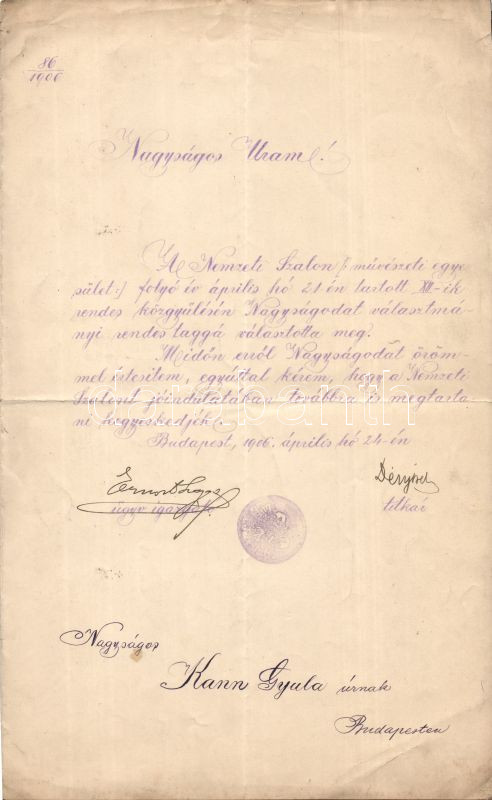 86
1906
Nagyságos Uram!
A Nemzeti Szalon /: művészeti egye
sület:/ folyó év április hó 21 én tartott XII-ik
rendes közgyűlésén Nagyságodat választmá-
nyi rendes taggá választotta meg.
Midőn erről Nagyságodat öröm-
mel értesitem, egyúttal kérem, hogy a Nemzeti
Szalont jóindulatában továbbra is megtarta
ni kegyeskedjék.
Budapest, 1906. április hó 24-én
Ernst Lajos
ügyv igazgató
titkár
Nagyságos
Kann Gyula úrnak
Budapesten